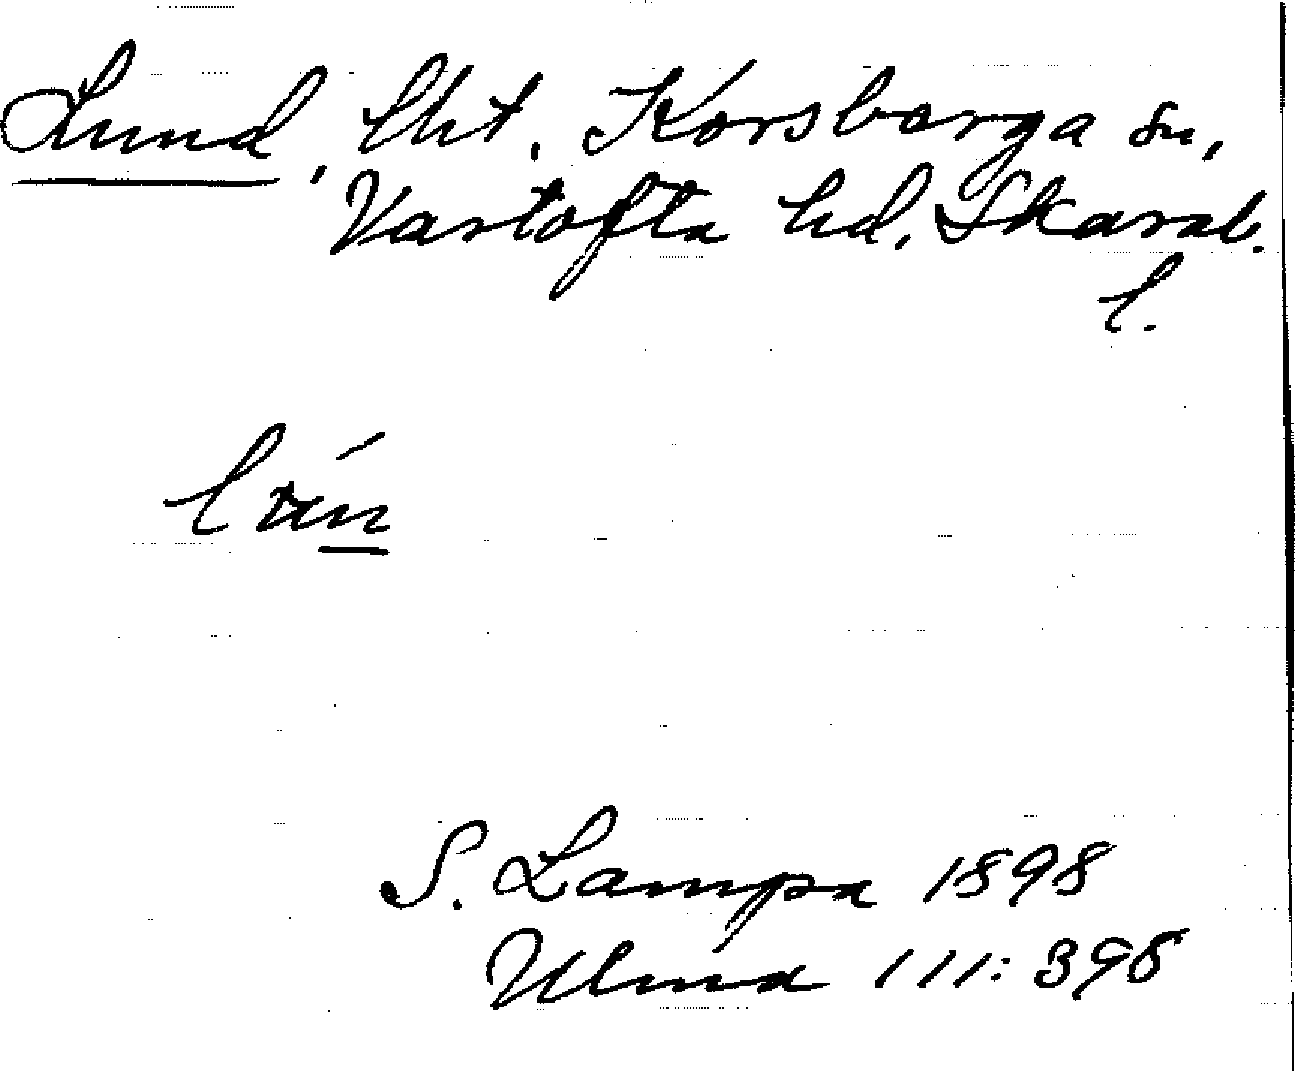 Lund, lht. Korsberga sn,
Vartofta hd. Skarab.
l.
S. Lampa 1898
Ulma 111:398